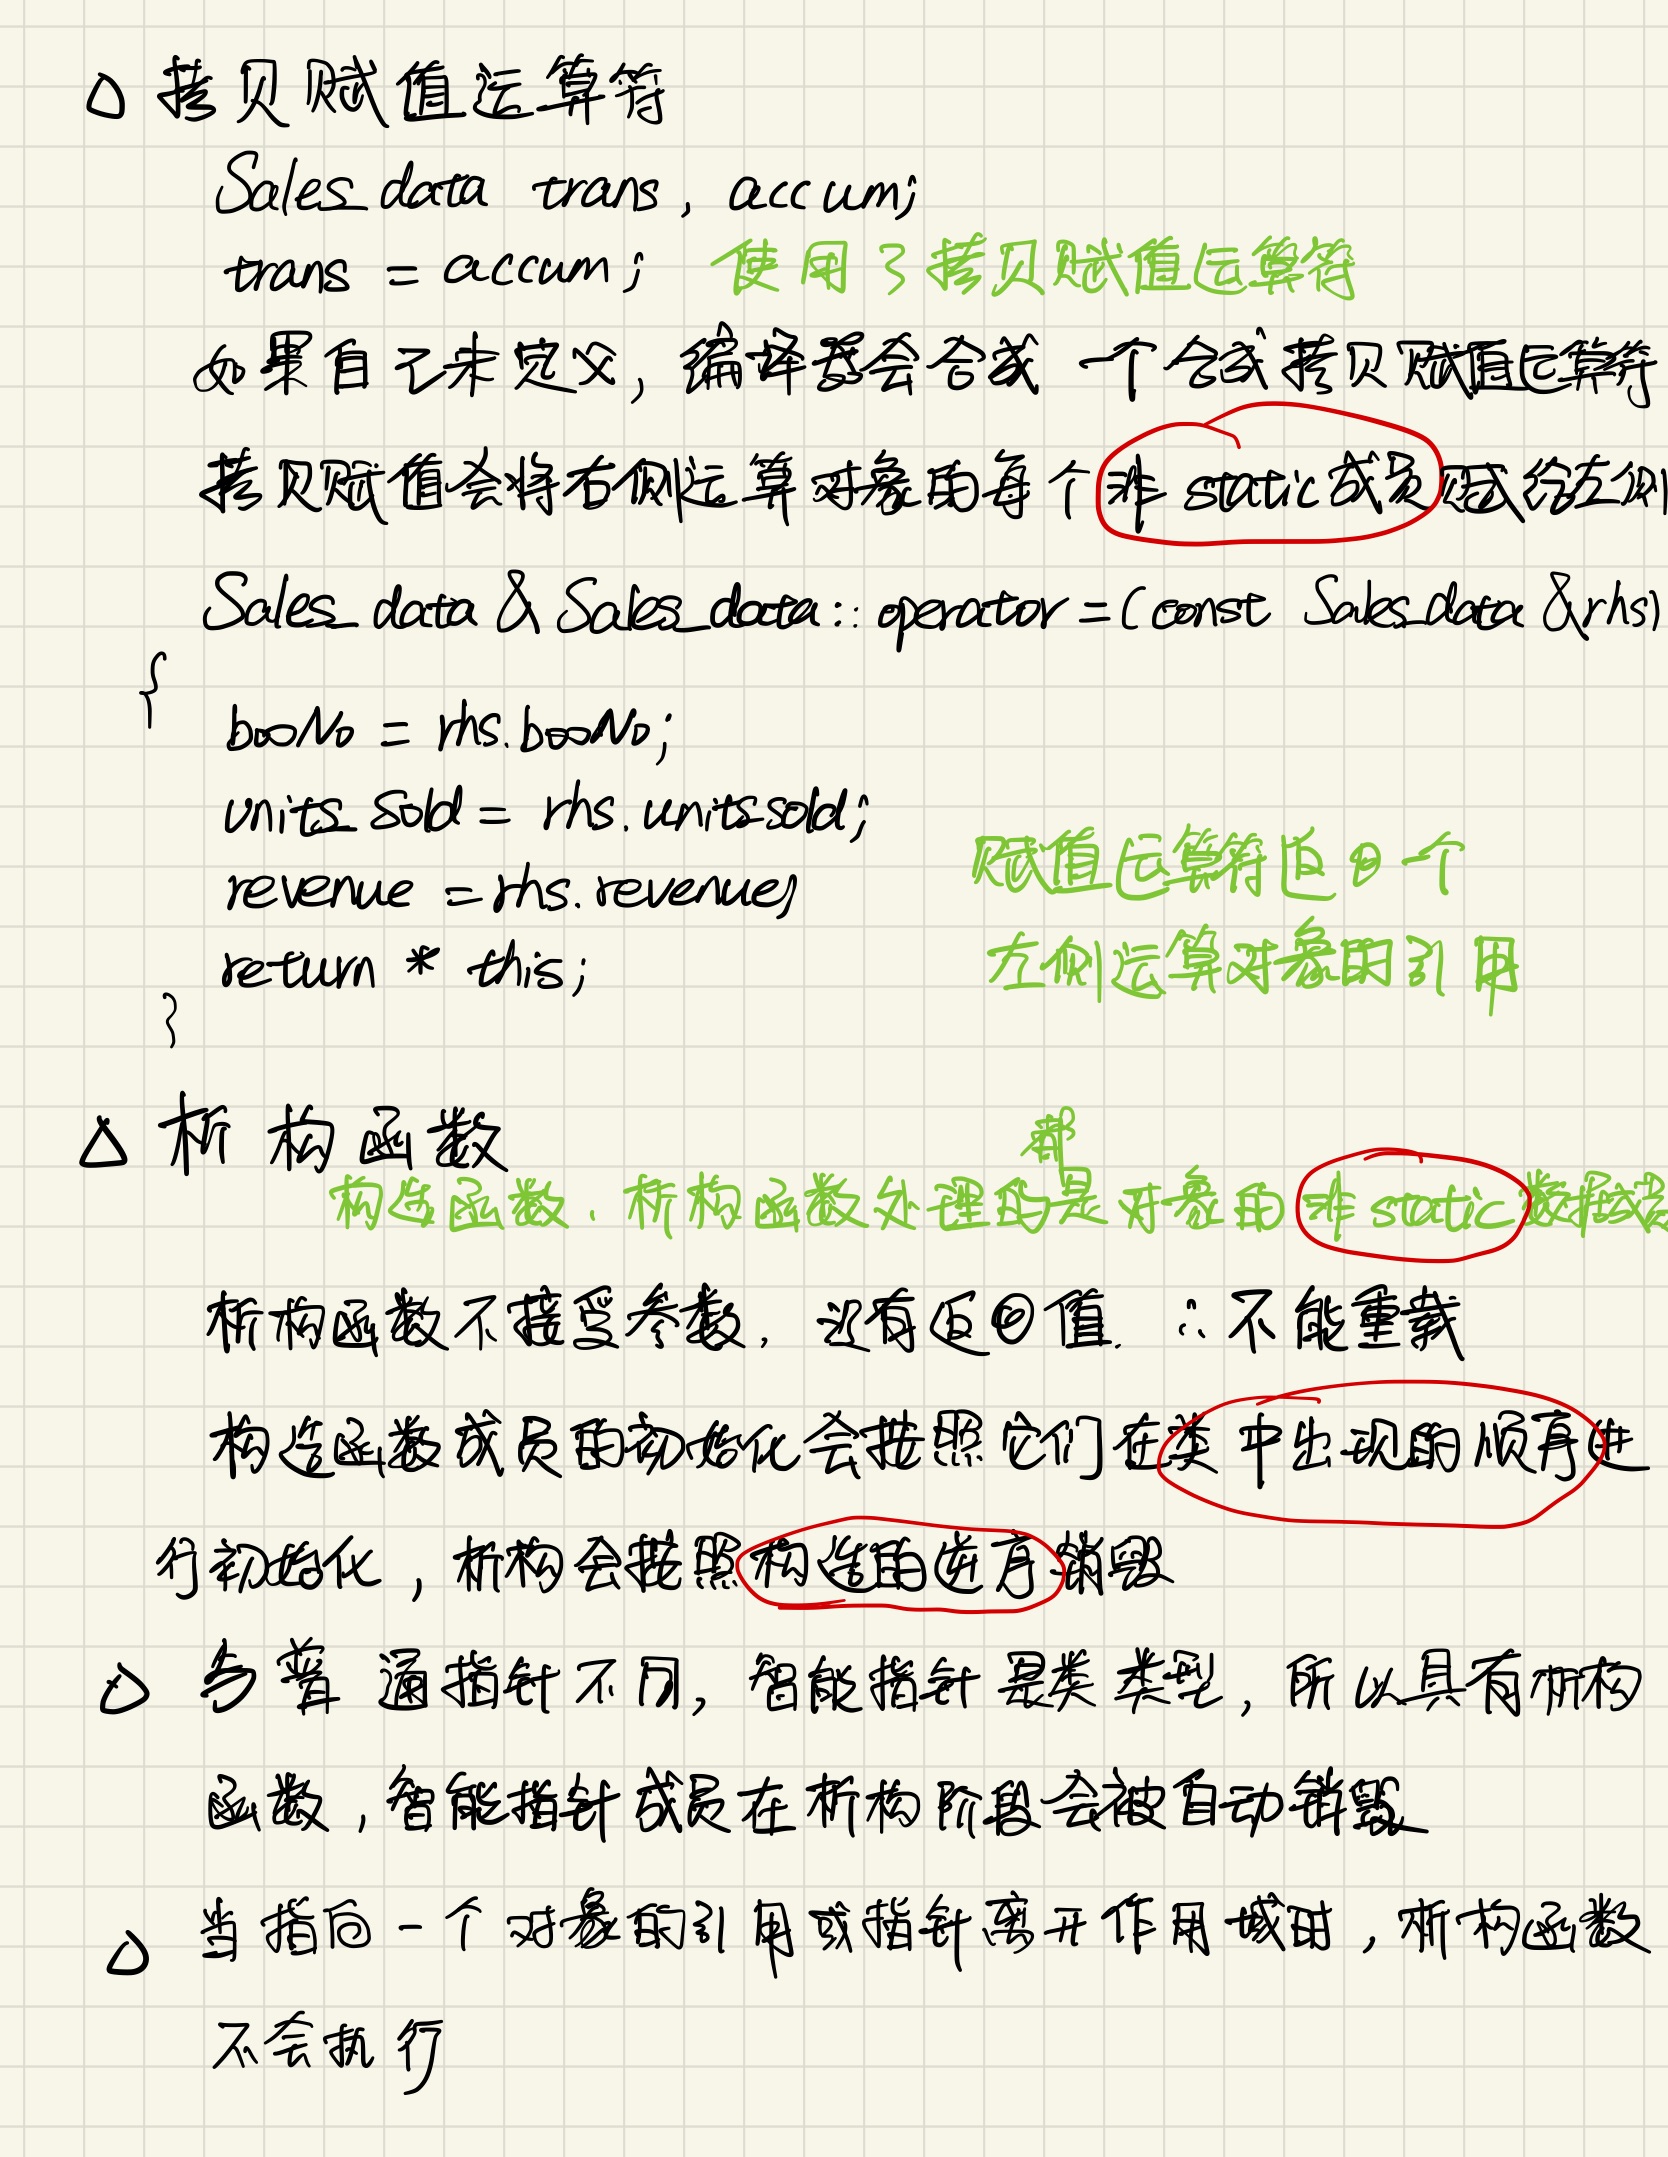 △ 拷贝赋值运算符
Sales_data trans, accum;
trans = accum; 使用了拷贝赋值运算符
如果自己未定义, 编译器会合成 一个合成拷贝赋值运算符
拷贝赋值会将右侧运算对象的每个非static成员赋给左侧
Sales_data & Sales_data::operator=(const Sales_data &rhs)
{
booNo = rhs.booNo;
units_sold = rhs.unitssold;
revenue = rhs.revenue;
return * this;
赋值运算符返回一个
左侧运算对象的引用
}
△ 析构函数
都
构造函数.析构函数处理的是对象的非static数据成员
析构函数不接受参数. 没有返回值. ∴不能重载
构造函数成员的初始化会按照它们在类中出现的顺序进
行初始化, 析构会按照构造的逆序销毁
△ 与普通指针不同, 智能指针是类类型, 所以具有析构
函数, 智能指针成员在析构阶段会被自动销毁
△ 当指向一个对象的引用或指针离开作用域时, 析构函数
不会执行